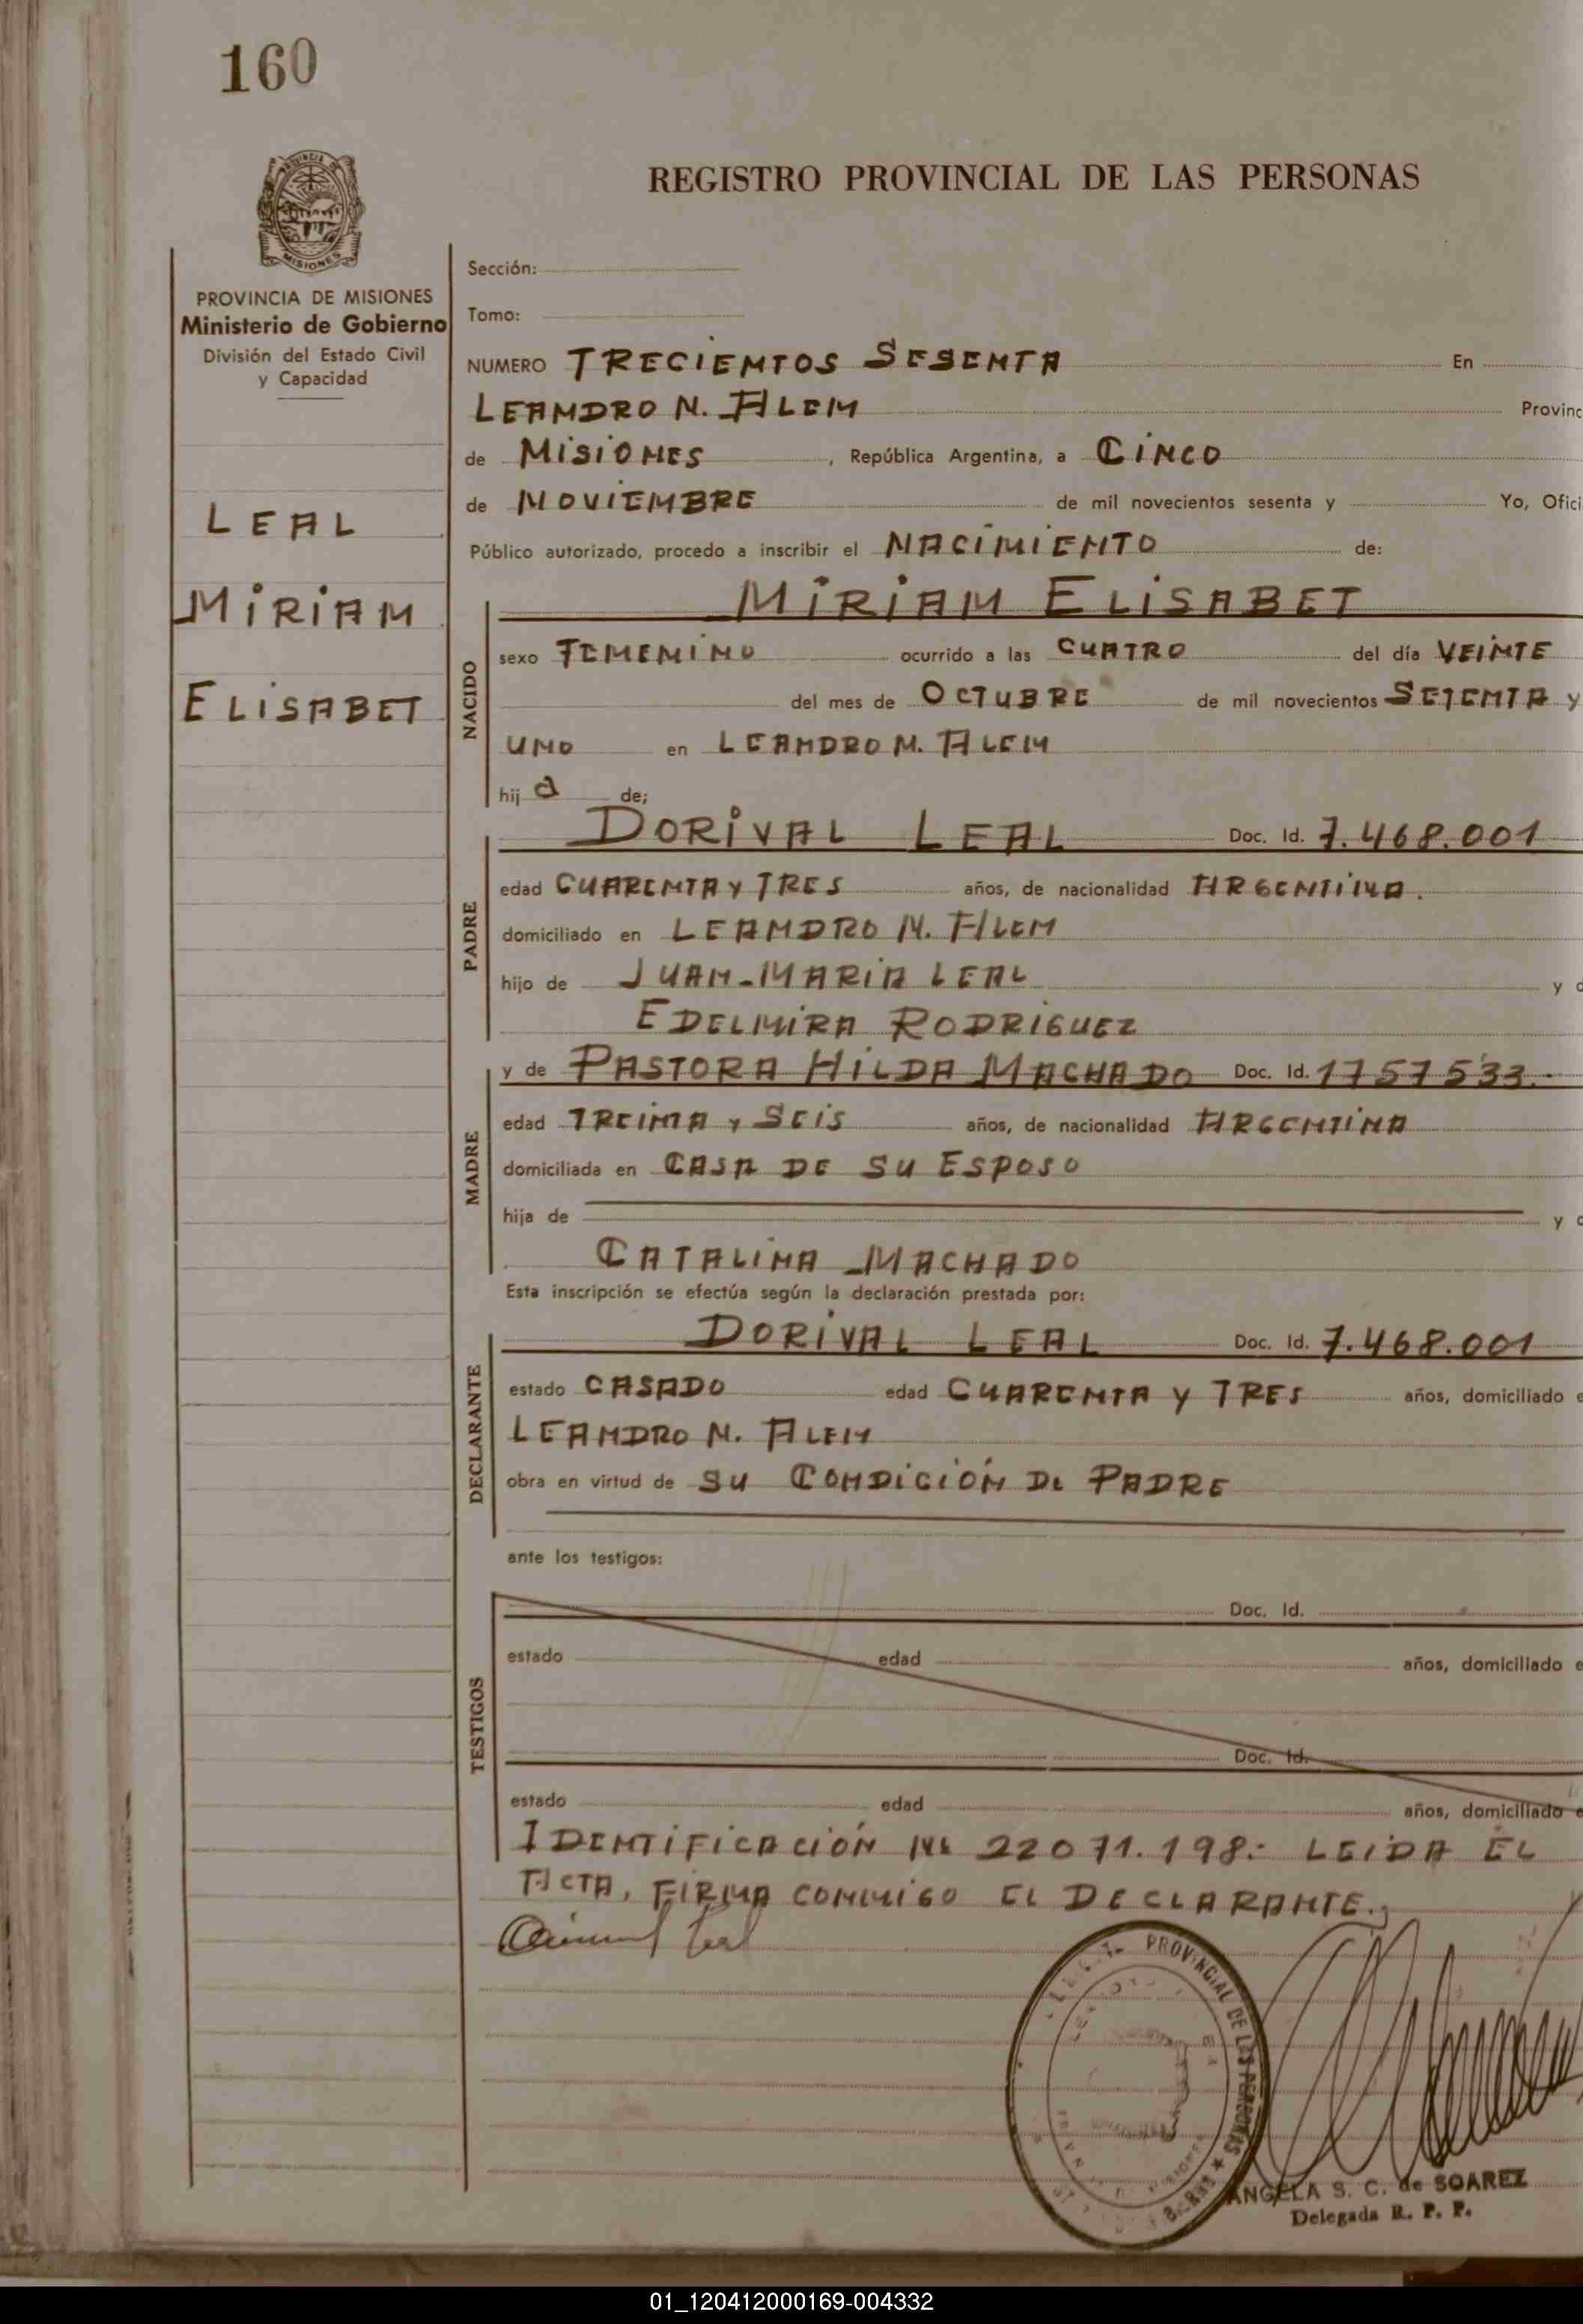 160
PROVINCIA DE MISIONES
Ministerio de Gobierno
División del Estado Civil
y Capacidad
LEAL
MIRIAM
ELISABET
REGISTRO PROVINCIAL DE LAS PERSONAS
Sección:
Tomo:
NUMERO TRECIENTOS SESENTA En
LEANDRO N. ALEM Provinc
de MISIONES, República Argentina, a CINCO
de NOVIEMBRE de mil novecientos sesenta y Yo, Ofici
Público autorizado, procedo a inscribir el NACIMIENTO de:
MIRIAM ELISABET
NACIDO
sexo FEMENINO ocurrido a las CUATRO del día VEINTE
del mes de OCTUBRE de mil novecientos SETENTA y
UNO en LEANDRO N. ALEM
hij a de;
DORIVAL LEAL Doc. Id. 7.468.001
PADRE
edad CUARENTA Y TRES años, de nacionalidad ARGENTINA.
domiciliado en LEANDRO N. ALEM
hijo de JUAN-MARIA LEAL y d
EDELMIRA RODRIGUEZ
y de PASTORA HILDA MACHADO Doc. Id. 1757533.-
MADRE
edad TREINTA Y SEIS años, de nacionalidad ARGENTINA
domiciliada en CASA DE SU ESPOSO
hija de y d
CATALINA MACHADO
Esta inscripción se efectúa según la declaración prestada por:
DORIVAL LEAL Doc. Id. 7.468.001
DECLARANTE
estado CASADO edad CUARENTA Y TRES años, domiciliado e
LEANDRO N. ALEM
obra en virtud de SU CONDICIÓN DE PADRE
ante los testigos:
Doc. Id.
TESTIGOS
estado edad años, domiciliado e
Doc. Id.
estado edad años, domiciliado e
IDENTIFICACIÓN Nº 22071.198.- LEIDA EL
ACTA, FIRMA CONMIGO EL DECLARANTE.-
Leal
PROVINCIAL DE LAS PERSONAS
ANGELA S. C. de SOAREZ
Delegada R. P. P.
01_120412000169-004332